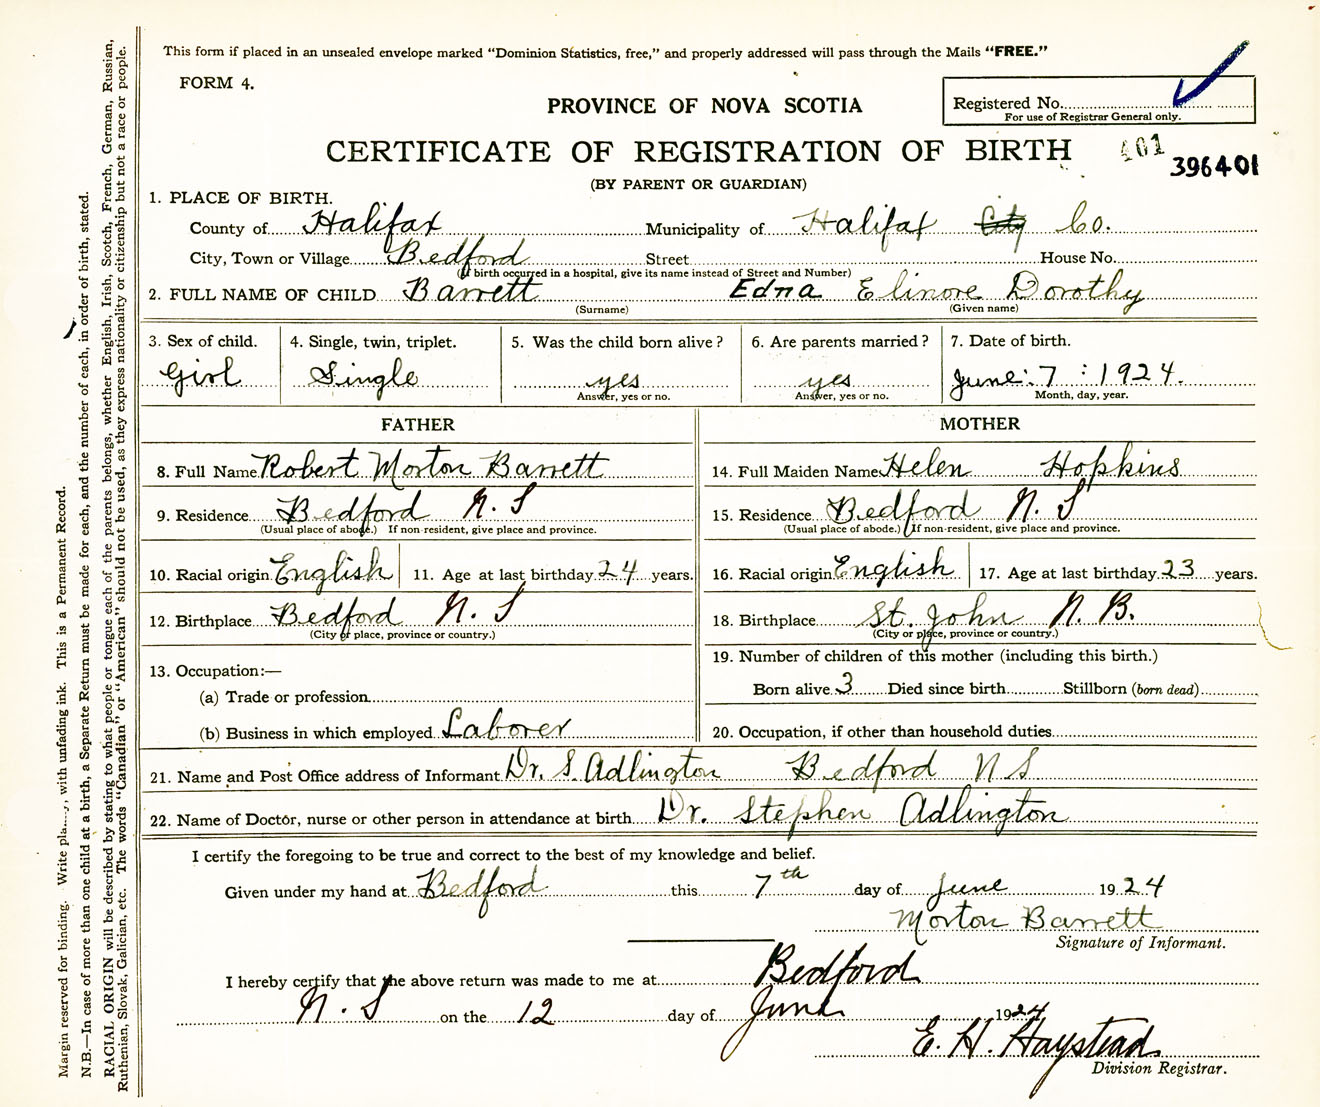 This form if placed in an unsealed envelope marked "Dominion Statistics, free," and properly addressed will pass through the Mails "FREE."
FORM 4.
PROVINCE OF NOVA SCOTIA
Registered No.
For use of Registrar General only.
CERTIFICATE OF REGISTRATION OF BIRTH
401
396401
(BY PARENT OR GUARDIAN)
1. PLACE OF BIRTH.
County of Halifax Municipality of Halifax City Co.
City, Town or Village Bedford Street House No.
(If birth occurred in a hospital, give its name instead of Street and Number)
2. FULL NAME OF CHILD Barrett Edna Elinore Dorothy
(Surname) (Given name)
3. Sex of child. 4. Single, twin, triplet. 5. Was the child born alive? 6. Are parents married? 7. Date of birth.
Girl Single yes yes June: 7 : 1924.
Answer, yes or no. Answer, yes or no. Month, day, year.
FATHER MOTHER
8. Full Name Robert Morton Barrett 14. Full Maiden Name Helen Hopkins
9. Residence Bedford N. S 15. Residence Bedford N. S
(Usual place of abode.) If non-resident, give place and province. (Usual place of abode.) If non-resident, give place and province.
10. Racial origin English 11. Age at last birthday 24 years. 16. Racial origin English 17. Age at last birthday 23 years.
12. Birthplace Bedford N. S 18. Birthplace St. John N. B.
(City or place, province or country.) (City or place, province or country.)
13. Occupation:— 19. Number of children of this mother (including this birth.)
(a) Trade or profession Born alive 3 Died since birth Stillborn (born dead)
(b) Business in which employed Laborer 20. Occupation, if other than household duties
21. Name and Post Office address of Informant Dr. S. Adlington Bedford N S
22. Name of Doctor, nurse or other person in attendance at birth Dr. Stephen Adlington
I certify the foregoing to be true and correct to the best of my knowledge and belief.
Given under my hand at Bedford this 7th day of June 1924
Morton Barrett
Signature of Informant.
I hereby certify that the above return was made to me at Bedford
N. S on the 12 day of June 1924
E. H. Haystead
Division Registrar.
Margin reserved for binding. Write with unfading ink. This is a Permanent Record.
N.B.—In case of more than one child at a birth, a Separate Return must be made for each, and the number of each, in order of birth, stated.
RACIAL ORIGIN will be described by stating to what people or tongue each of the parents belongs, whether English, Irish, Scotch, French, German, Russian,
Ruthenian, Slovak, Galician, etc. The words "Canadian" or "American" should not be used, as they express nationality or citizenship but not a race or people.